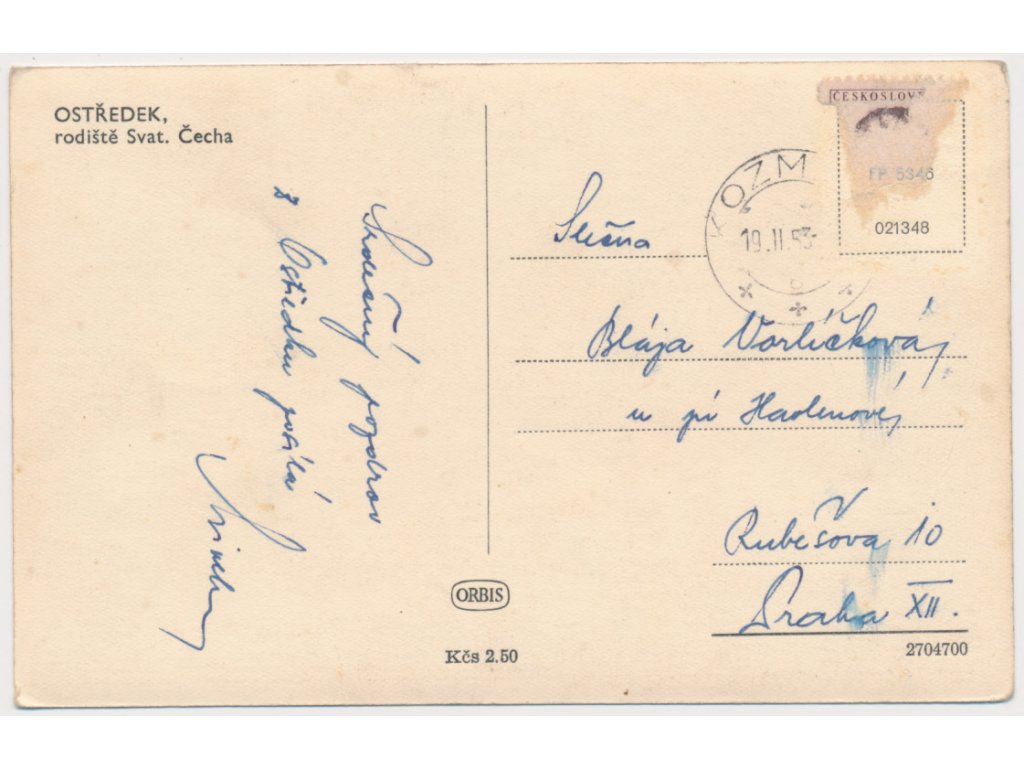 OSTŘEDEK,
rodiště Svat. Čecha
Srdečný pozdrav
z Ostředku posílá
ČESKOSLOV
FP 5346
021348
KOZM
19.II.53
Slečna
Blája Vorlíčková,
u pí Hadenové,
Rubešova 10
Praha XII.
ORBIS
Kčs 2.50
2704700